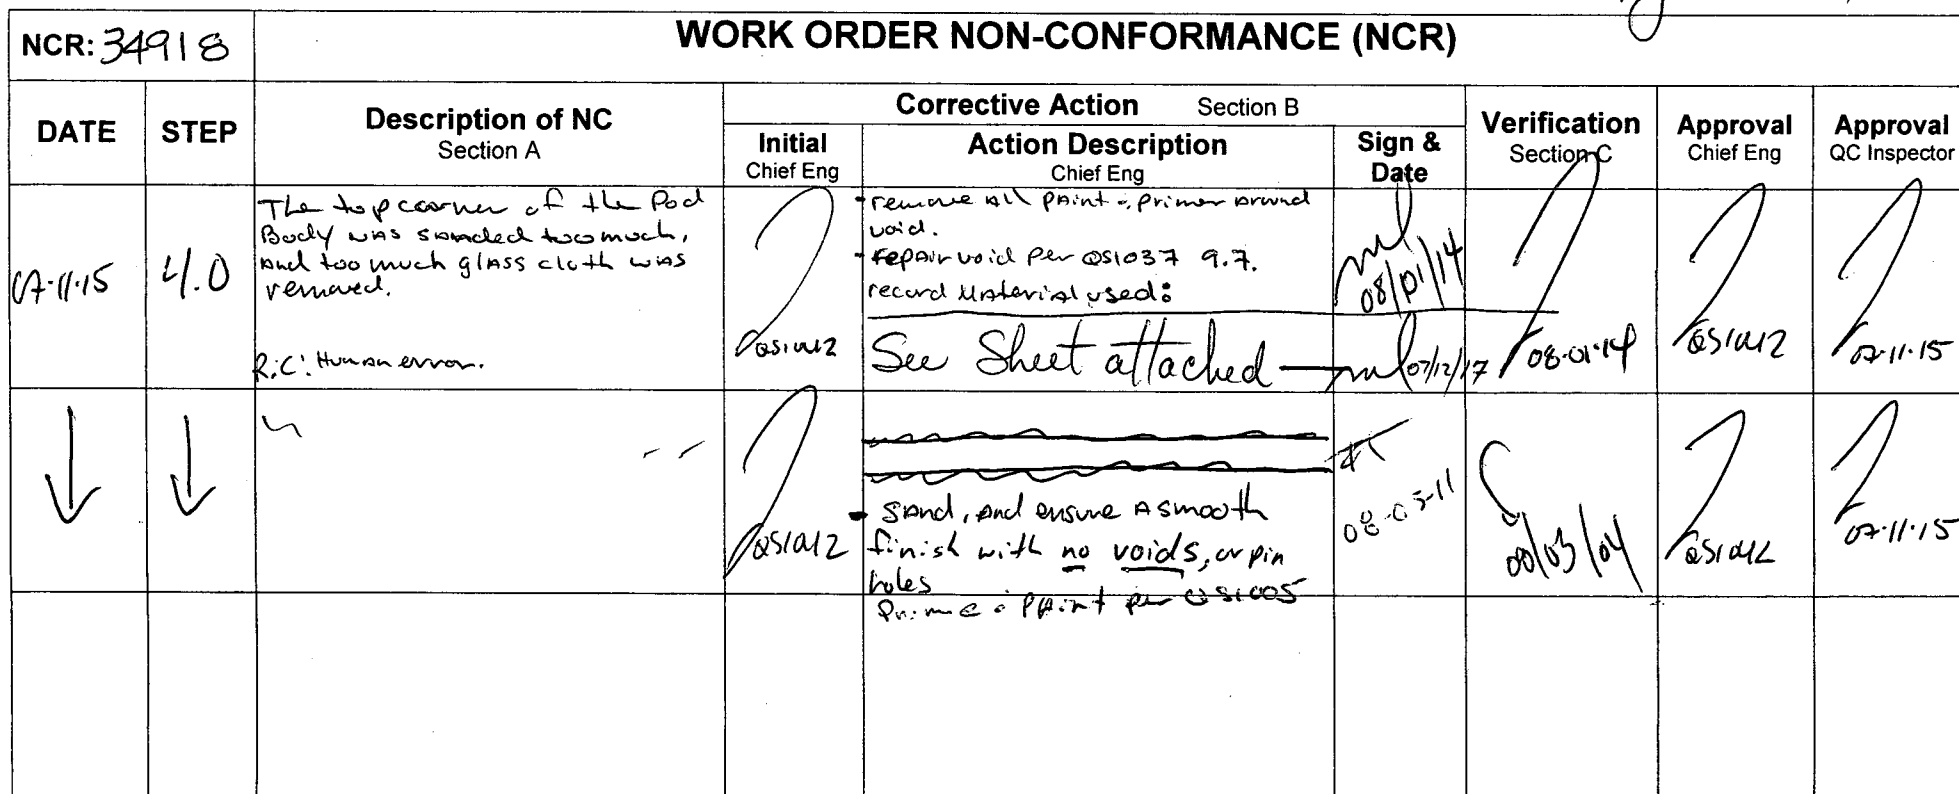 NCR: 34918
WORK ORDER NON-CONFORMANCE (NCR)
DATE
STEP
Description of NC
Section A
Corrective Action Section B
Initial
Chief Eng
Action Description
Chief Eng
Sign &
Date
Verification
Section C
Approval
Chief Eng
Approval
QC Inspector
07-11-15
4.0
The top corner of the Pod
Body was sanded too much,
and too much glass cloth was
removed.
R.C: Human error.
QSI042
- remove all paint & primer around
void.
- repair void per QSI037 9.7.
record material used:
See Sheet attached
08/01/14
07/12/17
08-01-14
QSI042
07-11-15
QSI042
- sand, and ensure a smooth
finish with no voids, or pin
holes
Prime & Paint per QSI005
08-03-11
08/03/04
QSI042
07-11-15